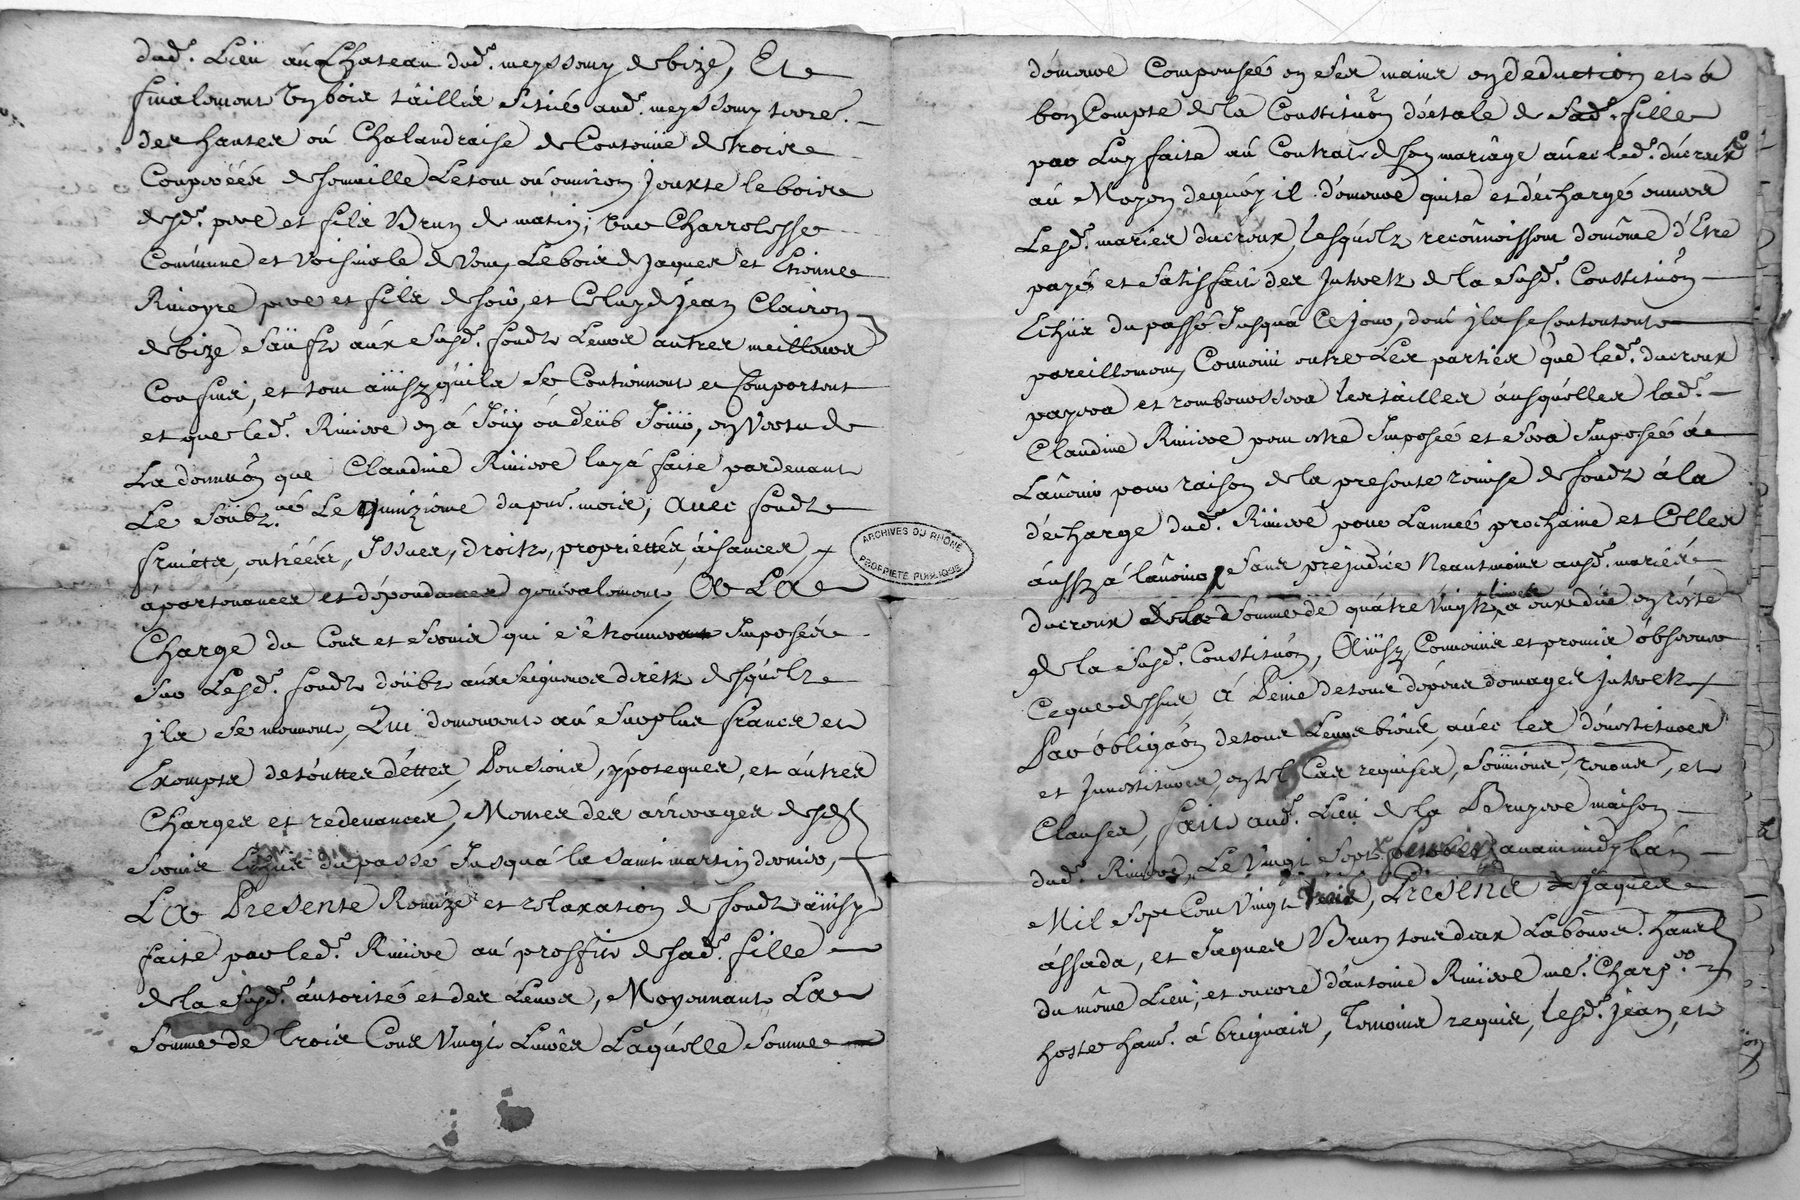 dud.t Lieu au Chateau dud.t meyssimy de bize, Et
finalement un bois tailliss situé aud.t meyssimy terre
des hautes ou Chalandraise de Contenue de trois
Coupéés de semaille Le tout ou environ jouxte le bois
desd.t pere et fils Brun de matin; rue Charrolesse
Commune et voisinale de vent, Le bois de Jaques et Etienne
Rivoyre pere et fils de soir, et Celuy de Jean Clairon
de bize Saufs aux susd.t fondz Leurs autres meilleurs
Confins, et tout ainsy qu'ils se Contiennent et Comportent
et que led.t Rivoire en á Jouy ou deub Jouir, en Vertu de
La donnaôn que Claudine Rivoire luy á faite pardevant
Le Soubz.né Le quinzieme du pnt. mois, avec fondz
fruicts, entréés, Issues, droits, propriettés, áisances,
ápartenances et dépendances generalement, A La
Charge du Cens et Servis qui se trouveront Imposés
sur Lesd.t fondz düübz aux Seigneurs directz desquelz
ils se meuvent, Qui demeurent au Surplus francs et
Exempts de touttes déttes, Pensions, ypoteques, et autres
Charges et redevances, Mesmes des arrerages desd.
Servis Echus du passé Jusquá la Saint martin dernier,
La Presente Remize et relaxation de fondz ainsy
faite par led.t Rivoire au proffit de sad.t fille
de la susd.t áutorité et des Leurs, Moyennant La
Somme de Trois Cens Vingt Livres Laquelle Somme
ARCHIVES DU RHÔNE
PROPRIÉTÉ PUBLIQUE
demeure Compensée en ses mains en deduction et á
bon Compte de la Constituôn dóctale de Sad.t fille
par Luy faite au Contrat de son mariage avec led.t ducroux
au Moyen dequoy il demeure quite et déchargé envers
Lesd.t mariés ducroux, lesquelz reconnoissent de même d'Etre
payés et Satisfait des Interetz de la susd.t Constituôn
Echus du passé Jusquá Ce Jour, dont ils se Contentent
pareillement, Convenu entre Les parties que led.t ducroux
payera et remboursera les tailles áusquelles lad.t
Claudine Rivoire peut etre Imposée et sera Imposée á
Lávenir pour raison de la presente remise de fondz á la
décharge dud.t Rivoire pour Lannéé prochaine et Celles
áussy á lávenir Sans prejudice Neantmoins ausd.t mariés
ducroux de la Somme de quátre Vingtz livres á eux due en reste
de la susd.t Constituôn, Ainsy Convenu et promis observer
Ce que dessus á Peine de tous dépens domages Interetz
Par obligaôn de tous Leurs biens, avec les
et en tel Cas requises, Soumions, renons, et
Clauses, fait aud.t Lieu de la Bruyere maison
dud.t Rivoire, Le Vingt Sept avant midy Lán
Mil Sept Cent Vingt trois, Présens Jaques
ássada, et Jaques Brun tous deux Laboureurs habit
du même Lieu, et encore d'antoine Rivoire me. Charp.er
hoste hant. á brignais, Temoins requis, lesd.t Jean, et